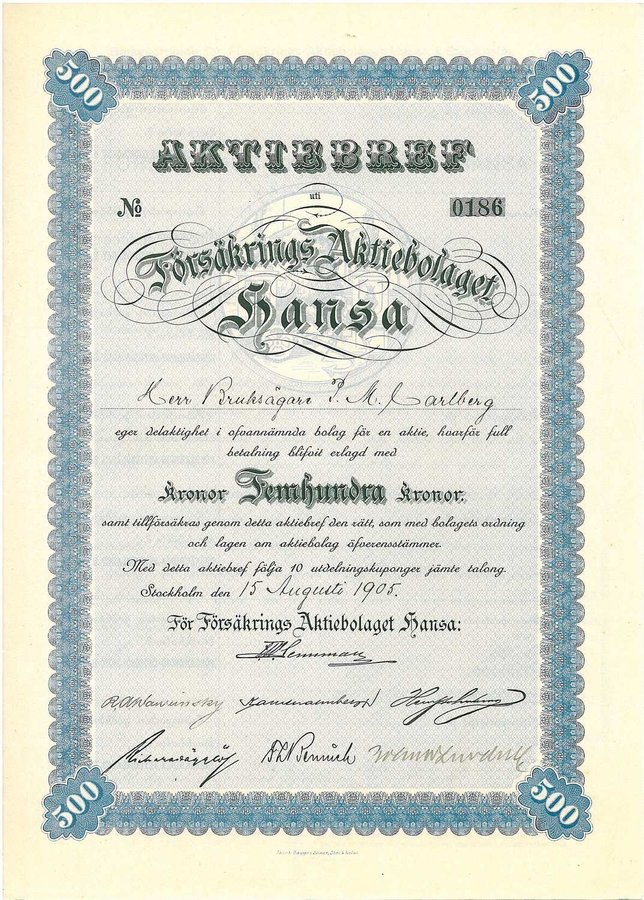 500 500
AKTIEBREF
uti
№ 0186
Försäkrings Aktiebolaget
Hansa
Herr Bruksägare P. M. Carlberg
eger delaktighet i ofvannämnda bolag för en aktie, hvarför full
betalning blifvit erlagd med
Kronor Femhundra Kronor,
samt tillförsäkras genom detta aktiebref den rätt, som med bolagets ordning
och lagen om aktiebolag öfverensstämmer.
Med detta aktiebref följa 10 utdelningskuponger jämte talong.
Stockholm den 15 Augusti 1905.
För Försäkrings Aktiebolaget Hansa:
500 500